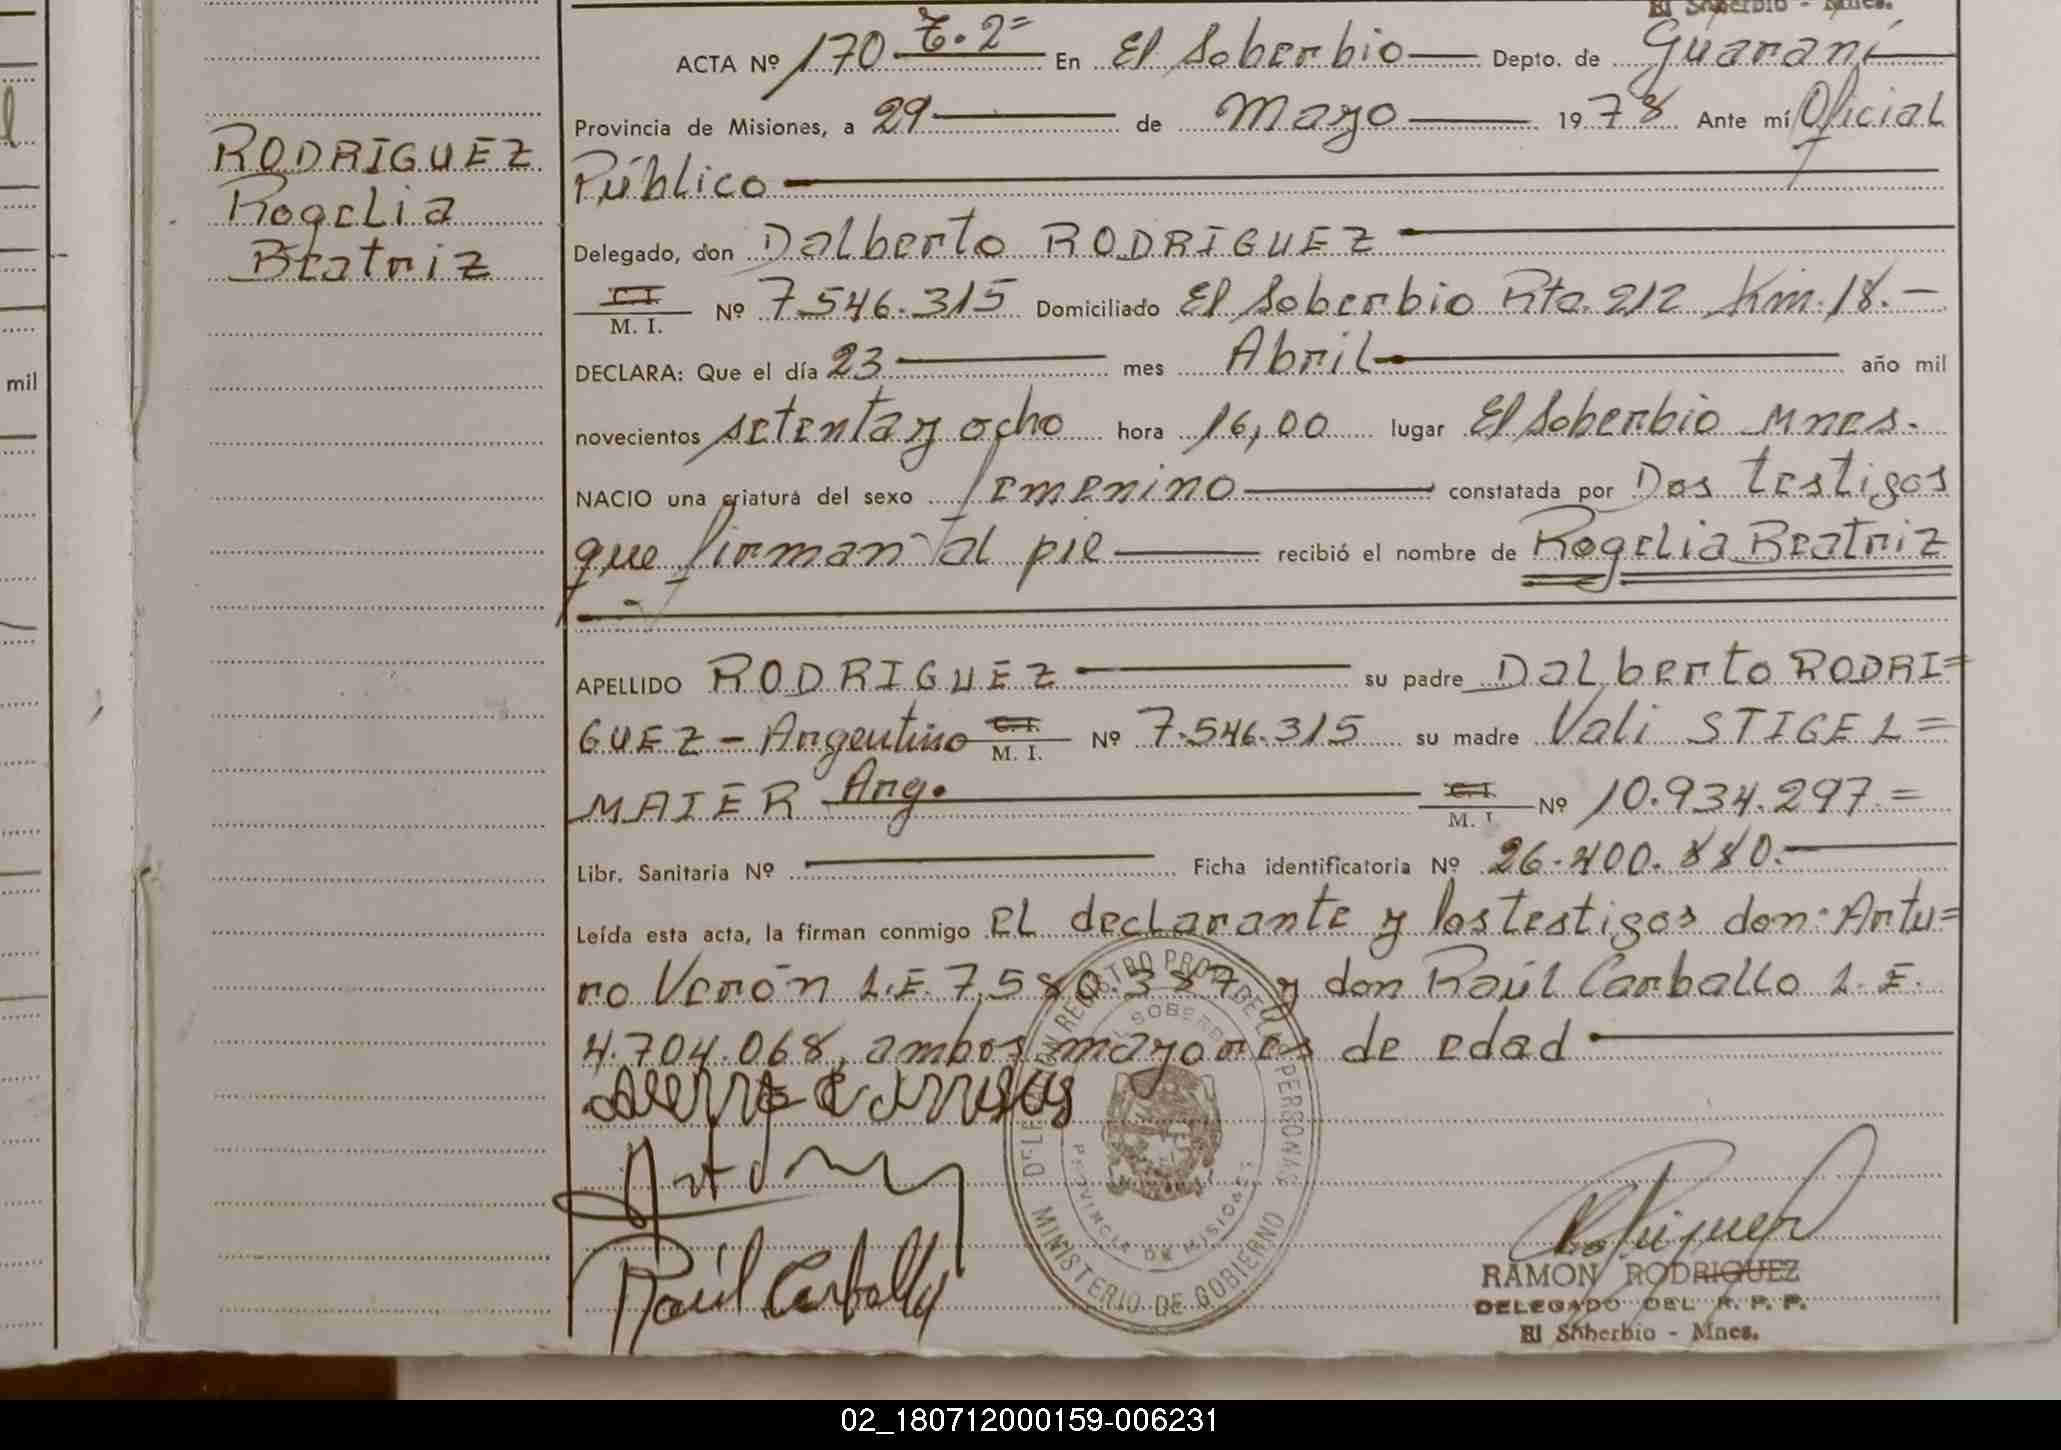 El Soberbio - Mnes.
ACTA Nº 170 T. 2= En El Soberbio Depto. de Guaraní
Provincia de Misiones, a 29 de Mayo 1978 Ante mí Oficial
Público
Delegado, don Dalberto RODRIGUEZ
C.I. M. I. Nº 7.546.315 Domiciliado El Soberbio Rta. 212 Km. 18.-
DECLARA: Que el día 23 mes Abril año mil
novecientos setenta y ocho hora 16,00 lugar El Soberbio Mnes.
NACIO una criatura del sexo femenino constatada por Dos testigos
que firman al pie recibió el nombre de Rogelia Beatriz
APELLIDO RODRIGUEZ su padre Dalberto RODRI=
GUEZ - Argentino C.I. M. I. Nº 7.546.315 su madre Vali STIGEL=
MAIER Arg. C.I. M. I. Nº 10.934.297.=
Libr. Sanitaria Nº Ficha identificatoria Nº 26.400.880.
Leída esta acta, la firman conmigo el declarante y los testigos don: Artu=
ro Verón L.E. 7.580.387 y don Raúl Carballo L.E.
4.704.068, ambos mayores de edad
Raúl Carballo
RODRIGUEZ
Rogelia
Beatriz
mil
DELEGACION REGISTRO PROV. DE LAS PERSONAS
EL SOBERBIO
PROVINCIA DE MISIONES
MINISTERIO DE GOBIERNO
RAMON RODRIGUEZ
DELEGADO DEL R. P. P.
El Soberbio - Mnes.
02_180712000159-006231